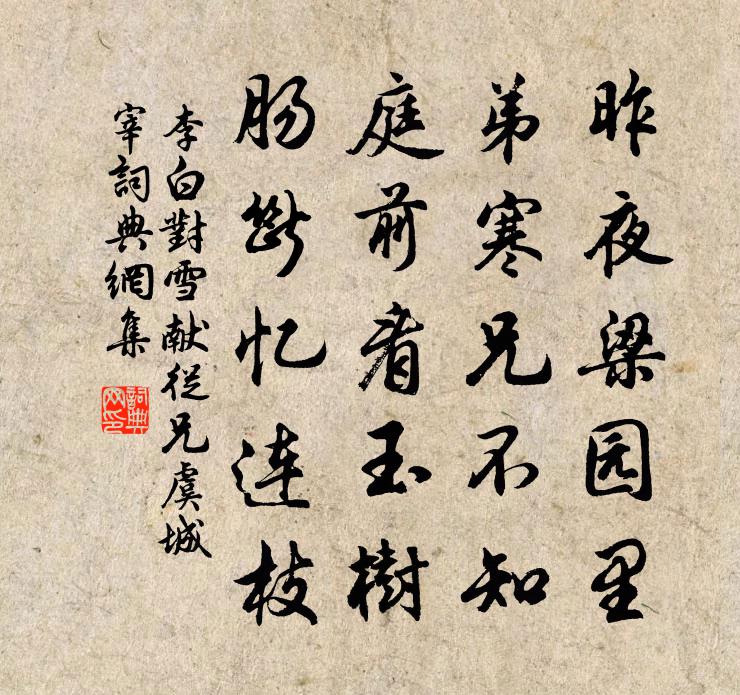 昨夜梁园里
弟寒兄不知
庭前看玉樹
肠断忆连枝
李白對雪献從兄虞城
宰詞典網集
詞典
网印